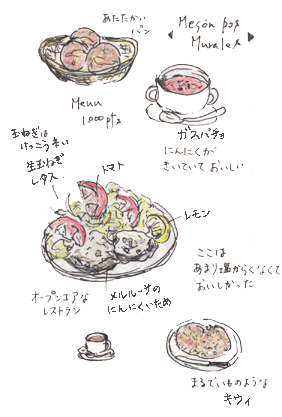 あたたかい
パン
Mesón pos
Murales
Menu
1,000 pts
ガスパチョ
にんにくが
きいていて おいしい
玉ねぎは
けっこう辛い
生玉ねぎ
レタス
トマト
レモン
オープンエアな
レストラン
メルルーサの
にんにくいため
ここは
あまり塩からくなくて
おいしかった
まるでいものような
キウィ